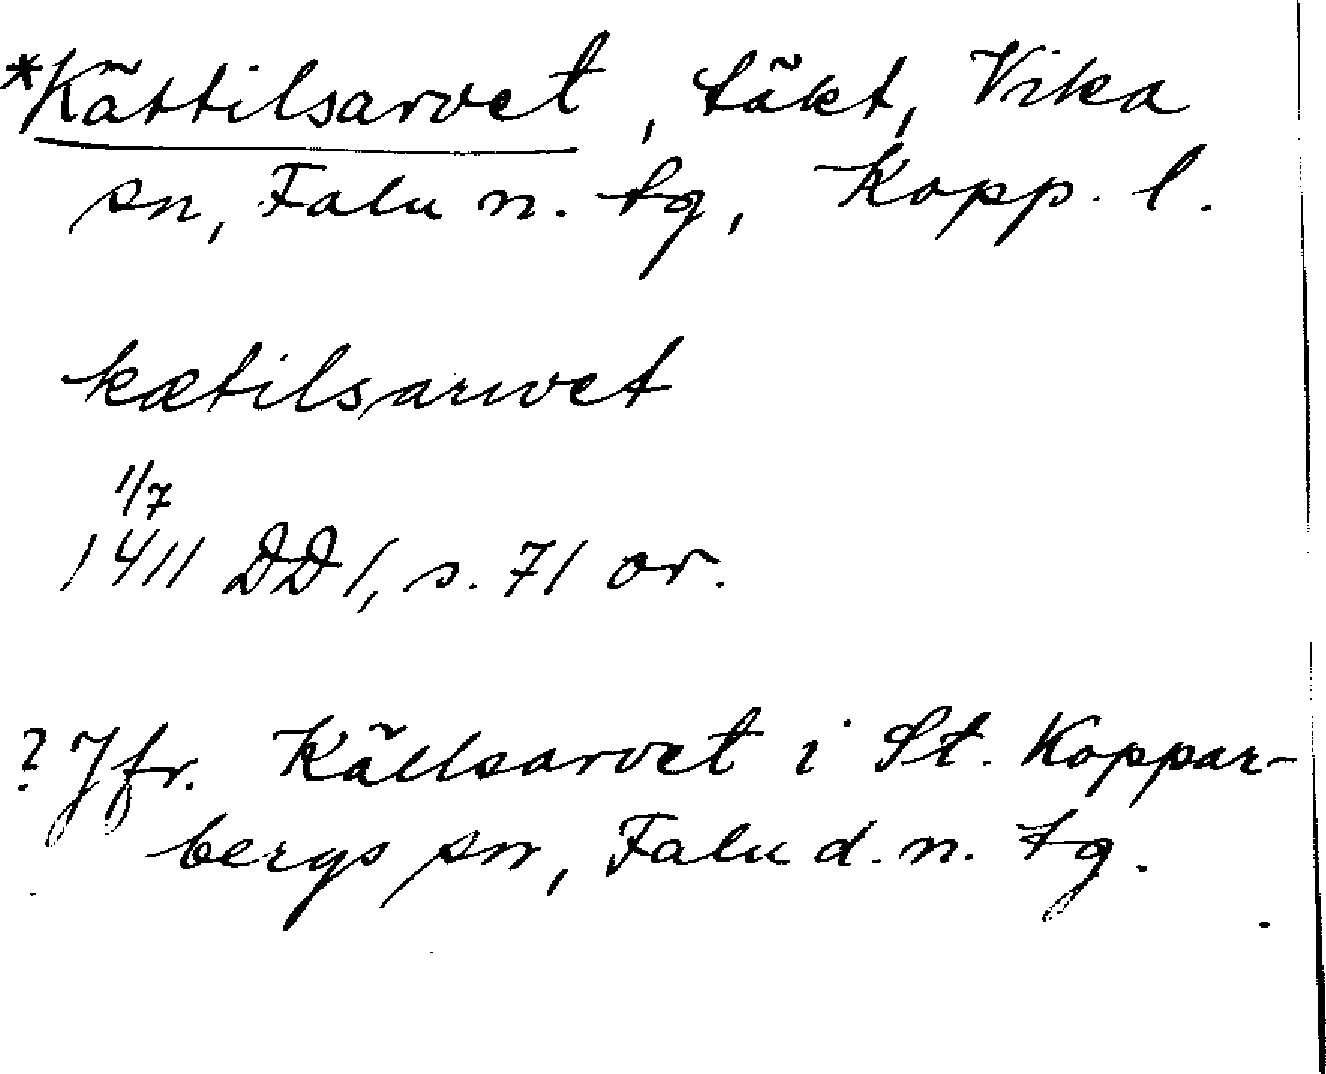 *Kättilsarvet, täkt, Vika
sn, Falu n. tg, Kopp. l.
kætilsarwet
1/7
1411 DD 1, s. 71 or.
? Jfr. Källsarvet i St. Koppar-
bergs sn, Falu d. n. tg.